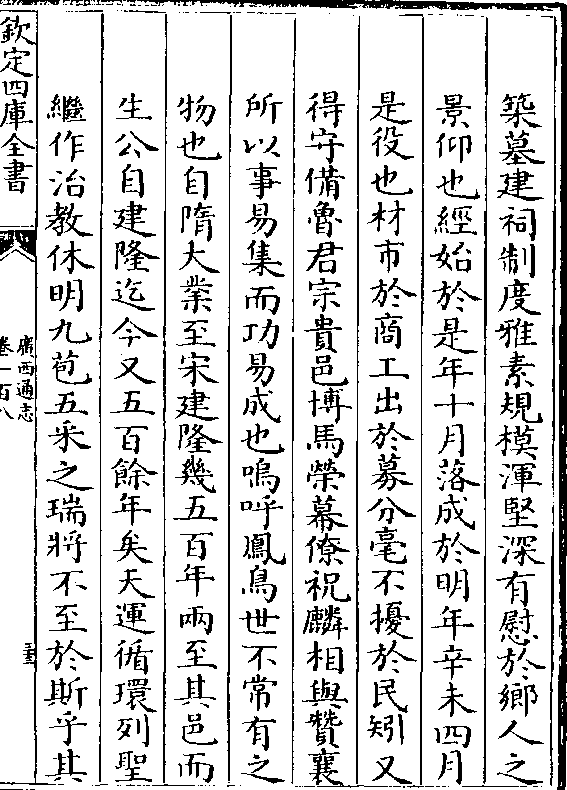 築墓建祠制度雅素規模渾堅深有慰於鄉人之
景仰也經始於是年十月落成於明年辛未四月
是役也材市於商工出於募分毫不擾於民矧又
得守備魯君宗貴邑博馬榮幕僚祝麟相與贊襄
所以事易集而功易成也嗚呼鳳鳥世不常有之
物也自隋大業至宋建隆幾五百年兩至其邑而
生公自建隆迄今又五百餘年矣天運循環列聖
繼作治教休明九苞五采之瑞將不至於斯乎其
欽定四庫全書
廣西通志
卷一百八